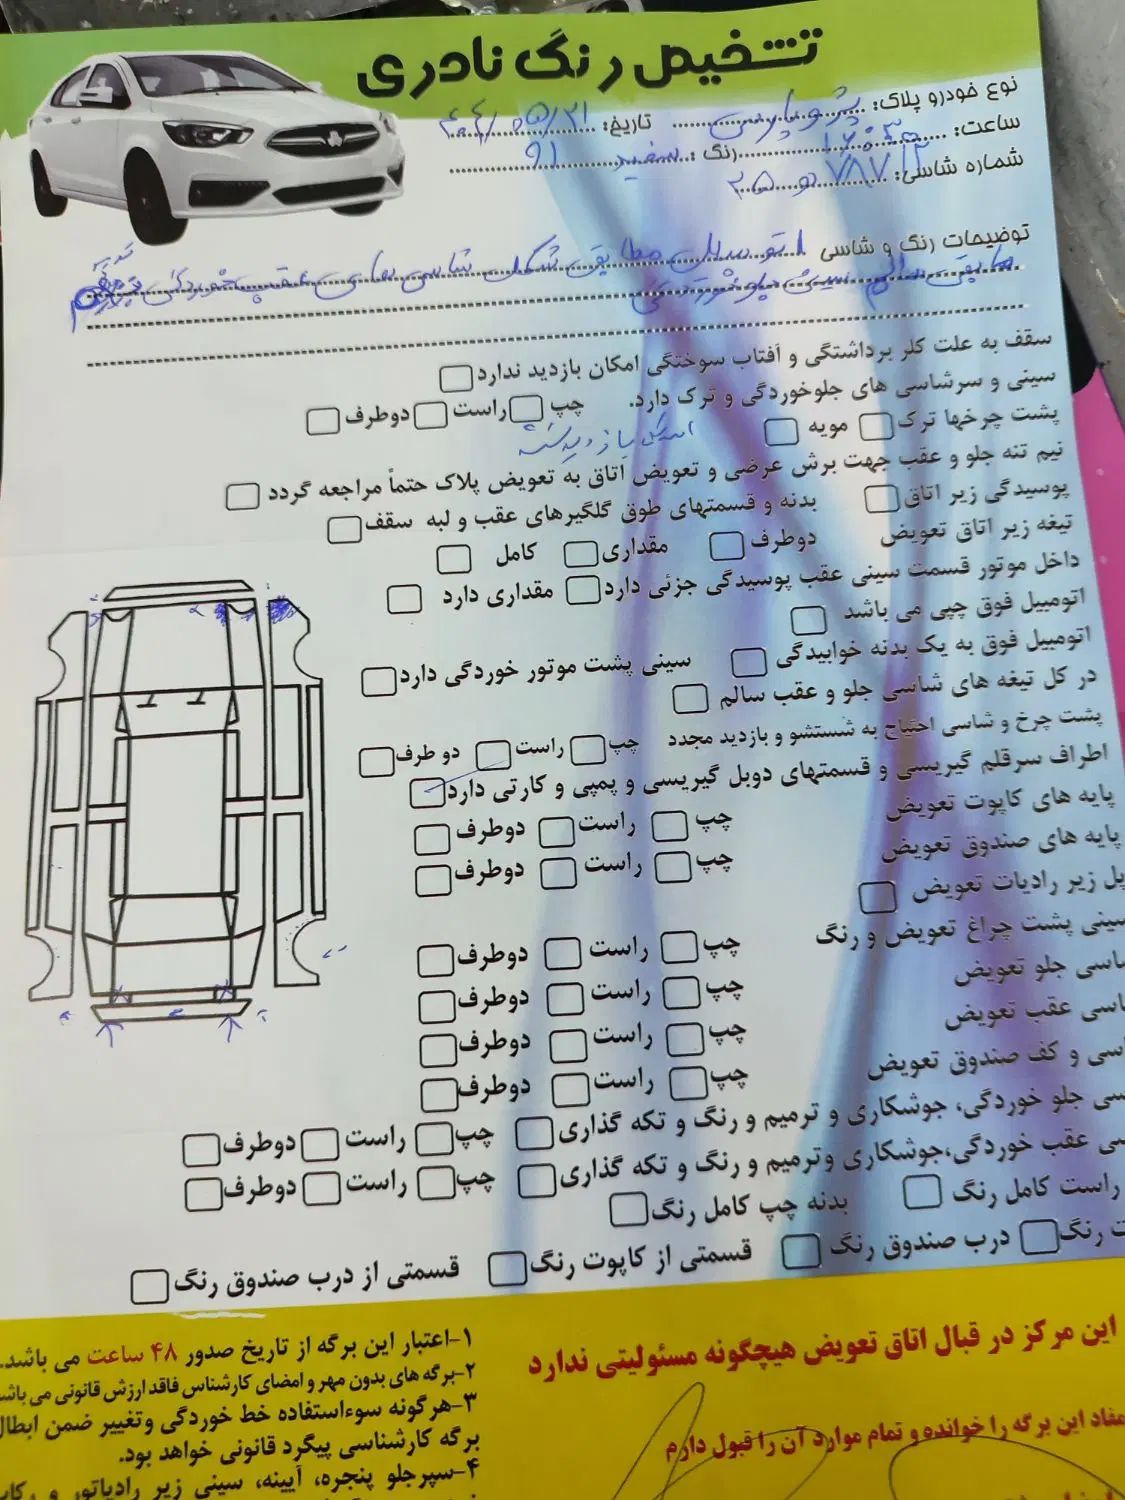 تشخیص رنگ نادری
نوع خودرو پلاک: پژو پارس تاریخ: ۴۰۴/۰۵/۲۱
ساعت: رنگ: سفید 91
شماره شاسی:
توضیحات رنگ و شاسی اتومبیل مطابق شکل شاسی های عقب خوردگی
مابقی سالم سینی جلو خوردگی
سقف به علت کلر برداشتگی و آفتاب سوختگی امکان بازدید ندارد
سینی و سرشاسی های جلوخوردگی و ترک دارد. چپ راست دوطرف
پشت چرخها ترک مویه
نیم تنه جلو و عقب جهت برش عرضی و تعویض اتاق به تعویض پلاک حتماً مراجعه گردد
پوسیدگی زیر اتاق بدنه و قسمتهای طوق گلگیرهای عقب و لبه سقف
تیغه زیر اتاق تعویض دوطرف مقداری کامل
داخل موتور قسمت سینی عقب پوسیدگی جزئی دارد مقداری دارد
اتومبیل فوق چپی می باشد
اتومبیل فوق به یک بدنه خوابیدگی سینی پشت موتور خوردگی دارد
در کل تیغه های شاسی جلو و عقب سالم
پشت چرخ و شاسی احتیاج به شستشو و بازدید مجدد چپ راست دو طرف
اطراف سرقلم گیریسی و قسمتهای دوبل گیریسی و پمپی و کارتی دارد
پایه های کاپوت تعویض چپ راست دوطرف
پایه های صندوق تعویض چپ راست دوطرف
پل زیر رادیات تعویض
سینی پشت چراغ تعویض و رنگ چپ راست دوطرف
شاسی جلو تعویض چپ راست دوطرف
اسی عقب تعویض چپ راست دوطرف
اسی و کف صندوق تعویض چپ راست دوطرف
سی جلو خوردگی، جوشکاری و ترمیم و رنگ و تکه گذاری چپ راست دوطرف
سی عقب خوردگی،جوشکاری وترمیم و رنگ و تکه گذاری چپ راست دوطرف
راست کامل رنگ بدنه چپ کامل رنگ
ت رنگ درب صندوق رنگ قسمتی از کاپوت رنگ قسمتی از درب صندوق رنگ
این مرکز در قبال اتاق تعویض هیچگونه مسئولیتی ندارد
مفاد این برگه را خوانده و تمام موارد آن را قبول دارم
۱-اعتبار این برگه از تاریخ صدور ۴۸ ساعت می باشد.
۲-برگه های بدون مهر و امضای کارشناس فاقد ارزش قانونی می باشد
۳-هرگونه سوءاستفاده خط خوردگی وتغییر ضمن ابطال
برگه کارشناسی پیگرد قانونی خواهد بود.
۴-سپرجلو پنجره، آیینه، سینی زیر رادیاتور و رکاب